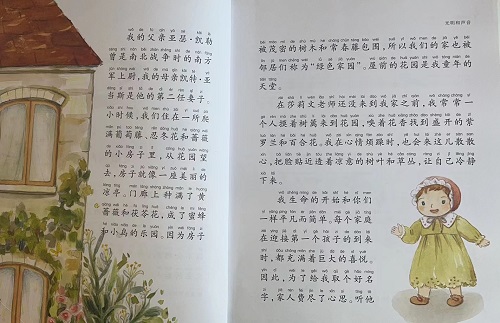 我的父亲亚瑟·凯勒
曾是南北战争时的南方
军上尉,我的母亲凯特·亚
当斯是他的第二任妻子。
小时候,我们住在一所爬
满葡萄藤、忍冬花和蔷薇
的小房子里,从花园望
去,房子就像一座美丽的
凉亭。门廊上种满了黄
蔷薇和茯苓花,成了蜜蜂
和小鸟的乐园。因为房子
光明和声音
被茂密的树木和常春藤包围,所以我们的家也被
邻居们称为“绿色家园”。屋前的花园是我童年的
天堂。
在莎莉文老师还没来到我家之前,我常常一
个人摸着树篱来到花园,嗅着花香找到盛开的紫
罗兰和百合花。我在心情烦躁时,也会来这儿散散
心,把脸贴近透着凉意的树叶和草丛,让自己冷静
下来。
我生命的开始和你们
一样平凡而简单。每个家庭
在迎接第一个孩子的到来
时,都充满着巨大的喜悦。
因此,为了给我取个好名
字,家人费尽了心思。听他